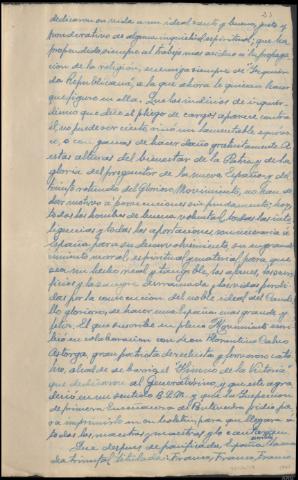 dedicaron su vida a un ideal santo y bueno, justo y
ponderativo de alguna inquietud espiritual; que ha
propendido siempre al trabajo más asiduo a la propaga-
ción de la religión, enemigo siempre de "Izquier-
da Republicana", a la que ahora le quieren hacer
que figure en ella. Que los indicios de izquier-
dismo que dice el pliego de cargos aparece contra
él, no puede ser cierto, sino un lamentable equívo-
co, o con ganas de hacer daño gratuitamente. A
estas alturas del bienestar de la Patria y de la
gloria del forjador de la nueva España y del
triunfo rotundo del Glorioso Movimiento, no han de
dar motivo a persecuciones sin fundamento; hoy
todos los hombres de buena voluntad, todas las inte-
ligencias y todas las aportaciones son necesarias a
España para su desenvolvimiento, su engrande-
cimiento moral, espiritual y material, para que
sea un hecho real y tangible, los afanes, los sacri-
ficios y la sangre derramada y las vidas perdi-
das por la convicción del noble ideal del Caudi-
llo glorioso, de hacer una España más grande y
feliz. El que suscribe en pleno Movimiento escri-
bió en colaboración con don Florentino Calvo
Astorga, gran patriota derechista y fervoroso católi-
co, alcalde de barrio, el "Himno de la Victoria"
que dedicaron al Generalísimo, y que este agra-
deció en un sentido B.L.M. y que la Inspección
de primera Enseñanza de pidió pa-
ra imprimirlo en su boletín para que llegara a
todos los maestros y maestras y lo cantaran.
Que después de pacificada España
dea triunfal titulada: Franco, Franco, Franco